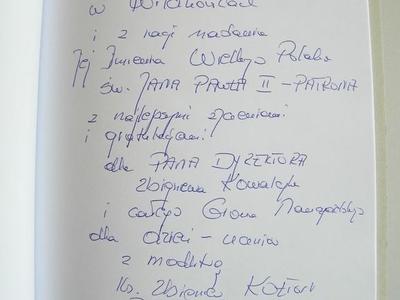 w Witankowicach
i z racji nadania
Jej Imienia Wielkiego Polaka
św. JANA PAWŁA II - PATRONA
z najlepszymi życzeniami
i gratulacjami
dla PANA DYREKTORA
Zbigniewa Kowalczyka
i całego Grona Nauczycielskiego
dla dzieci - uczniów
z modlitwą
ks. Zbigniew